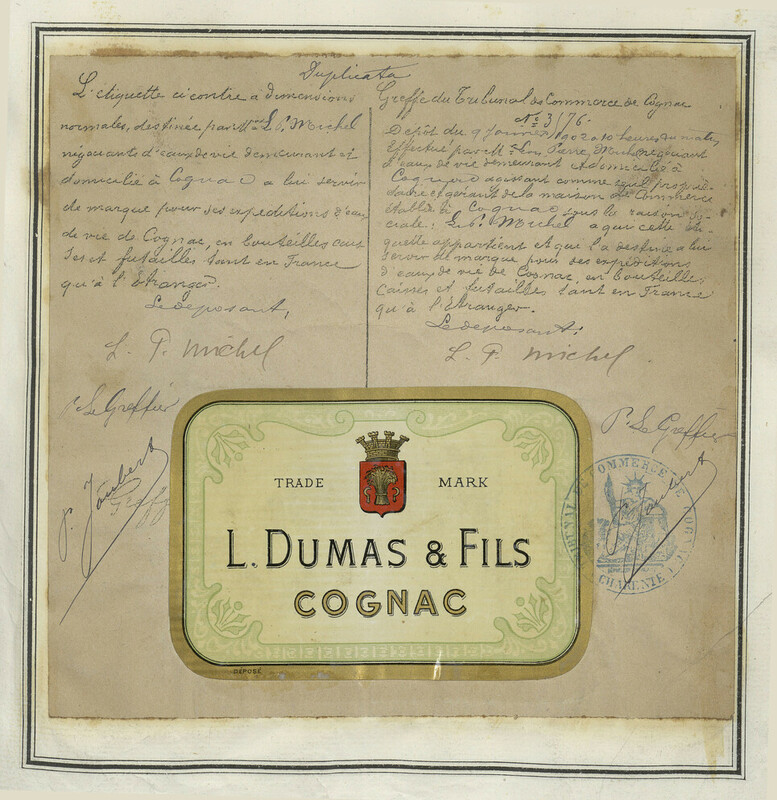 Duplicata
L'étiquette ci contre à dimensions
normales, destinée par L. P. Michel
négociants d'eaux de vie demeurant et
domicilié à Cognac a lui servir
de marque pour ses expéditions d'eau
de vie de Cognac, en bouteilles cais
ses et futailles tant en France
qu'à l'étranger.
Le déposant,
L. P. Michel
p. Le Greffier
p. Joubert
Greffe du Tribunal de Commerce de Cognac
No 3176
Dépôt du 9 Janvier 1902 à 10 heures du matin
Effectué par Mr Pierre négociant
d'eaux de vie demeurant & domicilié à
Cognac agissant comme seul proprié
taire et gérant de la maison de Commerce
établie à Cognac sous la raison so
ciale: L. P. Michel a qui cette éti
quette appartient et qui l'a destinée a lui
servir de marque pour ses expéditions
d'eaux de vie de Cognac, en bouteilles
caisses et futailles tant en France
qu'à l'Etranger.
Le déposant:
L. P. Michel
P. Le Greffier
p. Joubert
TRIBUNAL DE COMMERCE DE COGNAC
CHARENTE
TRADE MARK
L. DUMAS & FILS
COGNAC
DÉPOSÉ